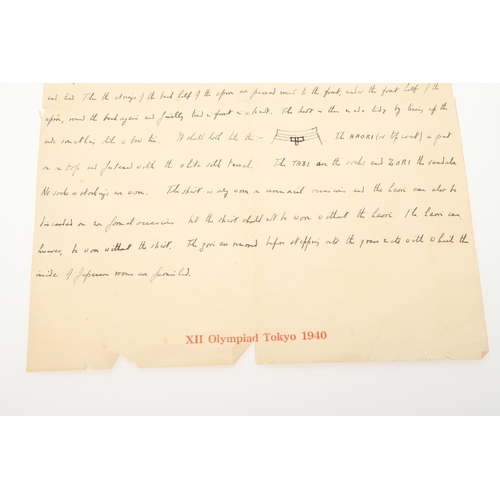 and tied. Then the strings of the back half of the apron are passed round to the front, under the front half of the
apron, round the back again and finally tied in front in a knot. The knot is then made tidy by the ends
and something like a bow tie. It should look like this:- The HAORI (or top coat) is put
on on top and fastened with the white silk tassel. The TABI are the socks and ZORI the sandals.
No socks or stockings are worn. The skirt is only worn on ceremonial occasions and the haori can also be
discarded on informal occasions but the skirt should not be worn without the haori. The haori can,
however, be worn without the skirt. The zori are removed before stepping onto the grass mats with which the
inside of Japanese rooms are furnished.
XII Olympiad Tokyo 1940